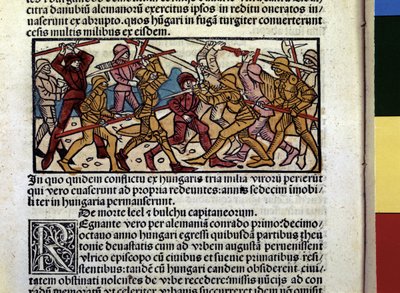 citra danubiũ alemanorũ exercitus ipsos in reditu oneratos in
uaserunt ex abrupto. quos hũgari in fugã turgiter conuerterunt
cesis multis milibus ex eisdem.
In quo quidem conflictu ex hungaris tria milia virorũ perierũt
qui vero euaserunt ad propria redeuntes: annis sedecim imobi
liter in hungaria permanserunt.
De morte leel ⁊ bulchu capitaneorum.
REgnante vero per alemaniã conrado primo: decimo
octauo anno hungari egressi quibusdã partibus theu
tonie deuastatis cum ad vrbem augustã peruenissent
vlrico episcopo cũ ciuibus et sueuie primatibus resi
stentibus: tandẽ cũ hungari eandem obsiderent ciui
tatem obstinati nolentes de vrbe recedere: missis nũcijs ad con
radũ memoratũ ut celeriter vrbanis succurreret idem nõ omisit